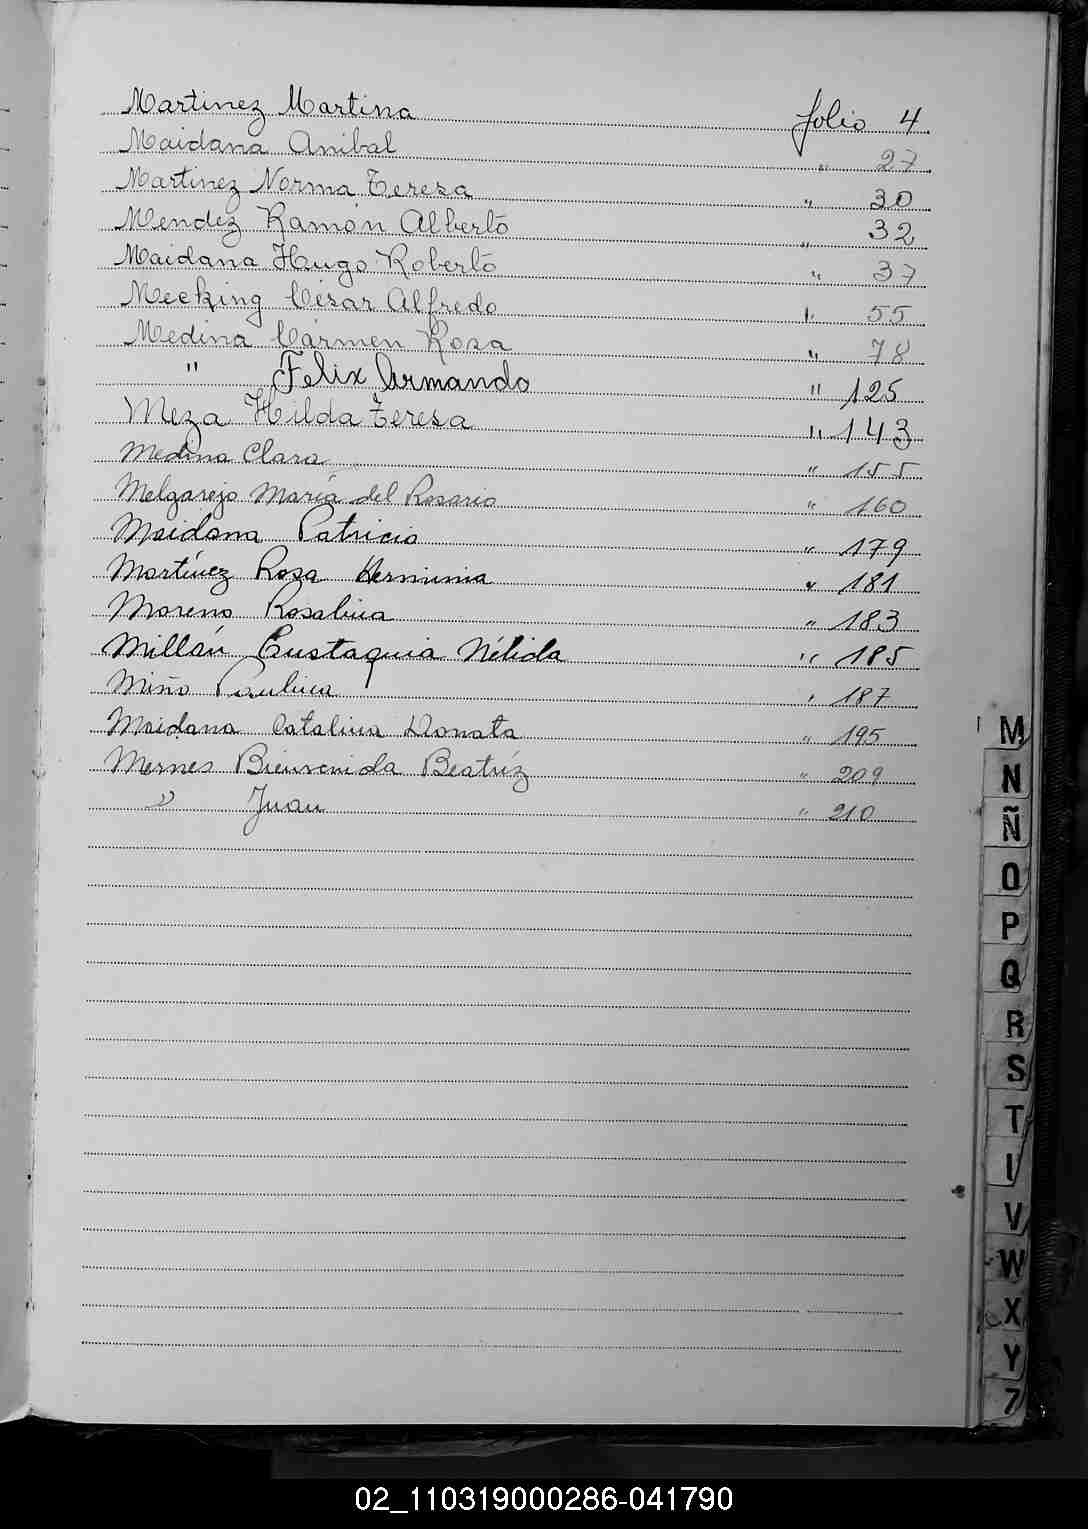 Martinez Martina folio 4
Maidana Anibal " 27
Martinez Norma Teresa " 30
Mendez Ramón Alberto " 32
Maidana Hugo Roberto " 37
Mecking César Alfredo " 55
Medina Cármen Rosa " 78
" Felix Armando " 125
Meza Hilda Teresa " 143
Medina Clara " 155
Melgarejo María del Rosario " 160
Maidana Patricia " 179
Martínez Rosa Herminia " 181
Moreno Rosalina " 183
Millán Eustaquia Nélida " 185
Miño Paulina " 187
Maidana Catalina Donata " 195
Mernes Bienvenida Beatríz " 209
" Juan " 210
M
N
Ñ
O
P
Q
R
S
T
V
W
X
Y
02_110319000286-041790